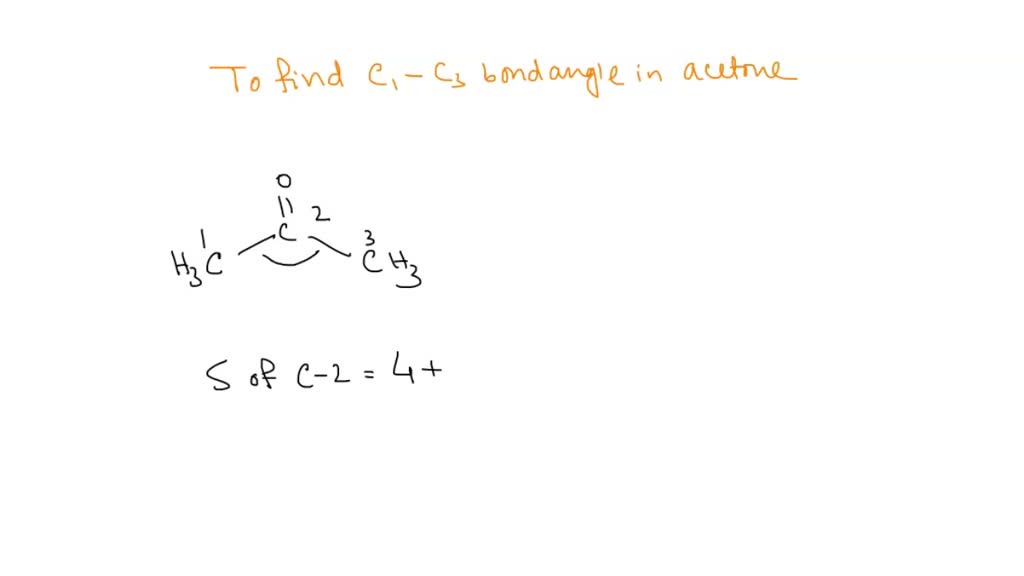 To find C₁-C₃ bondangle in acetone
O
||
C 2
1
H₃C
3
CH₃
S of C-2 = 4+